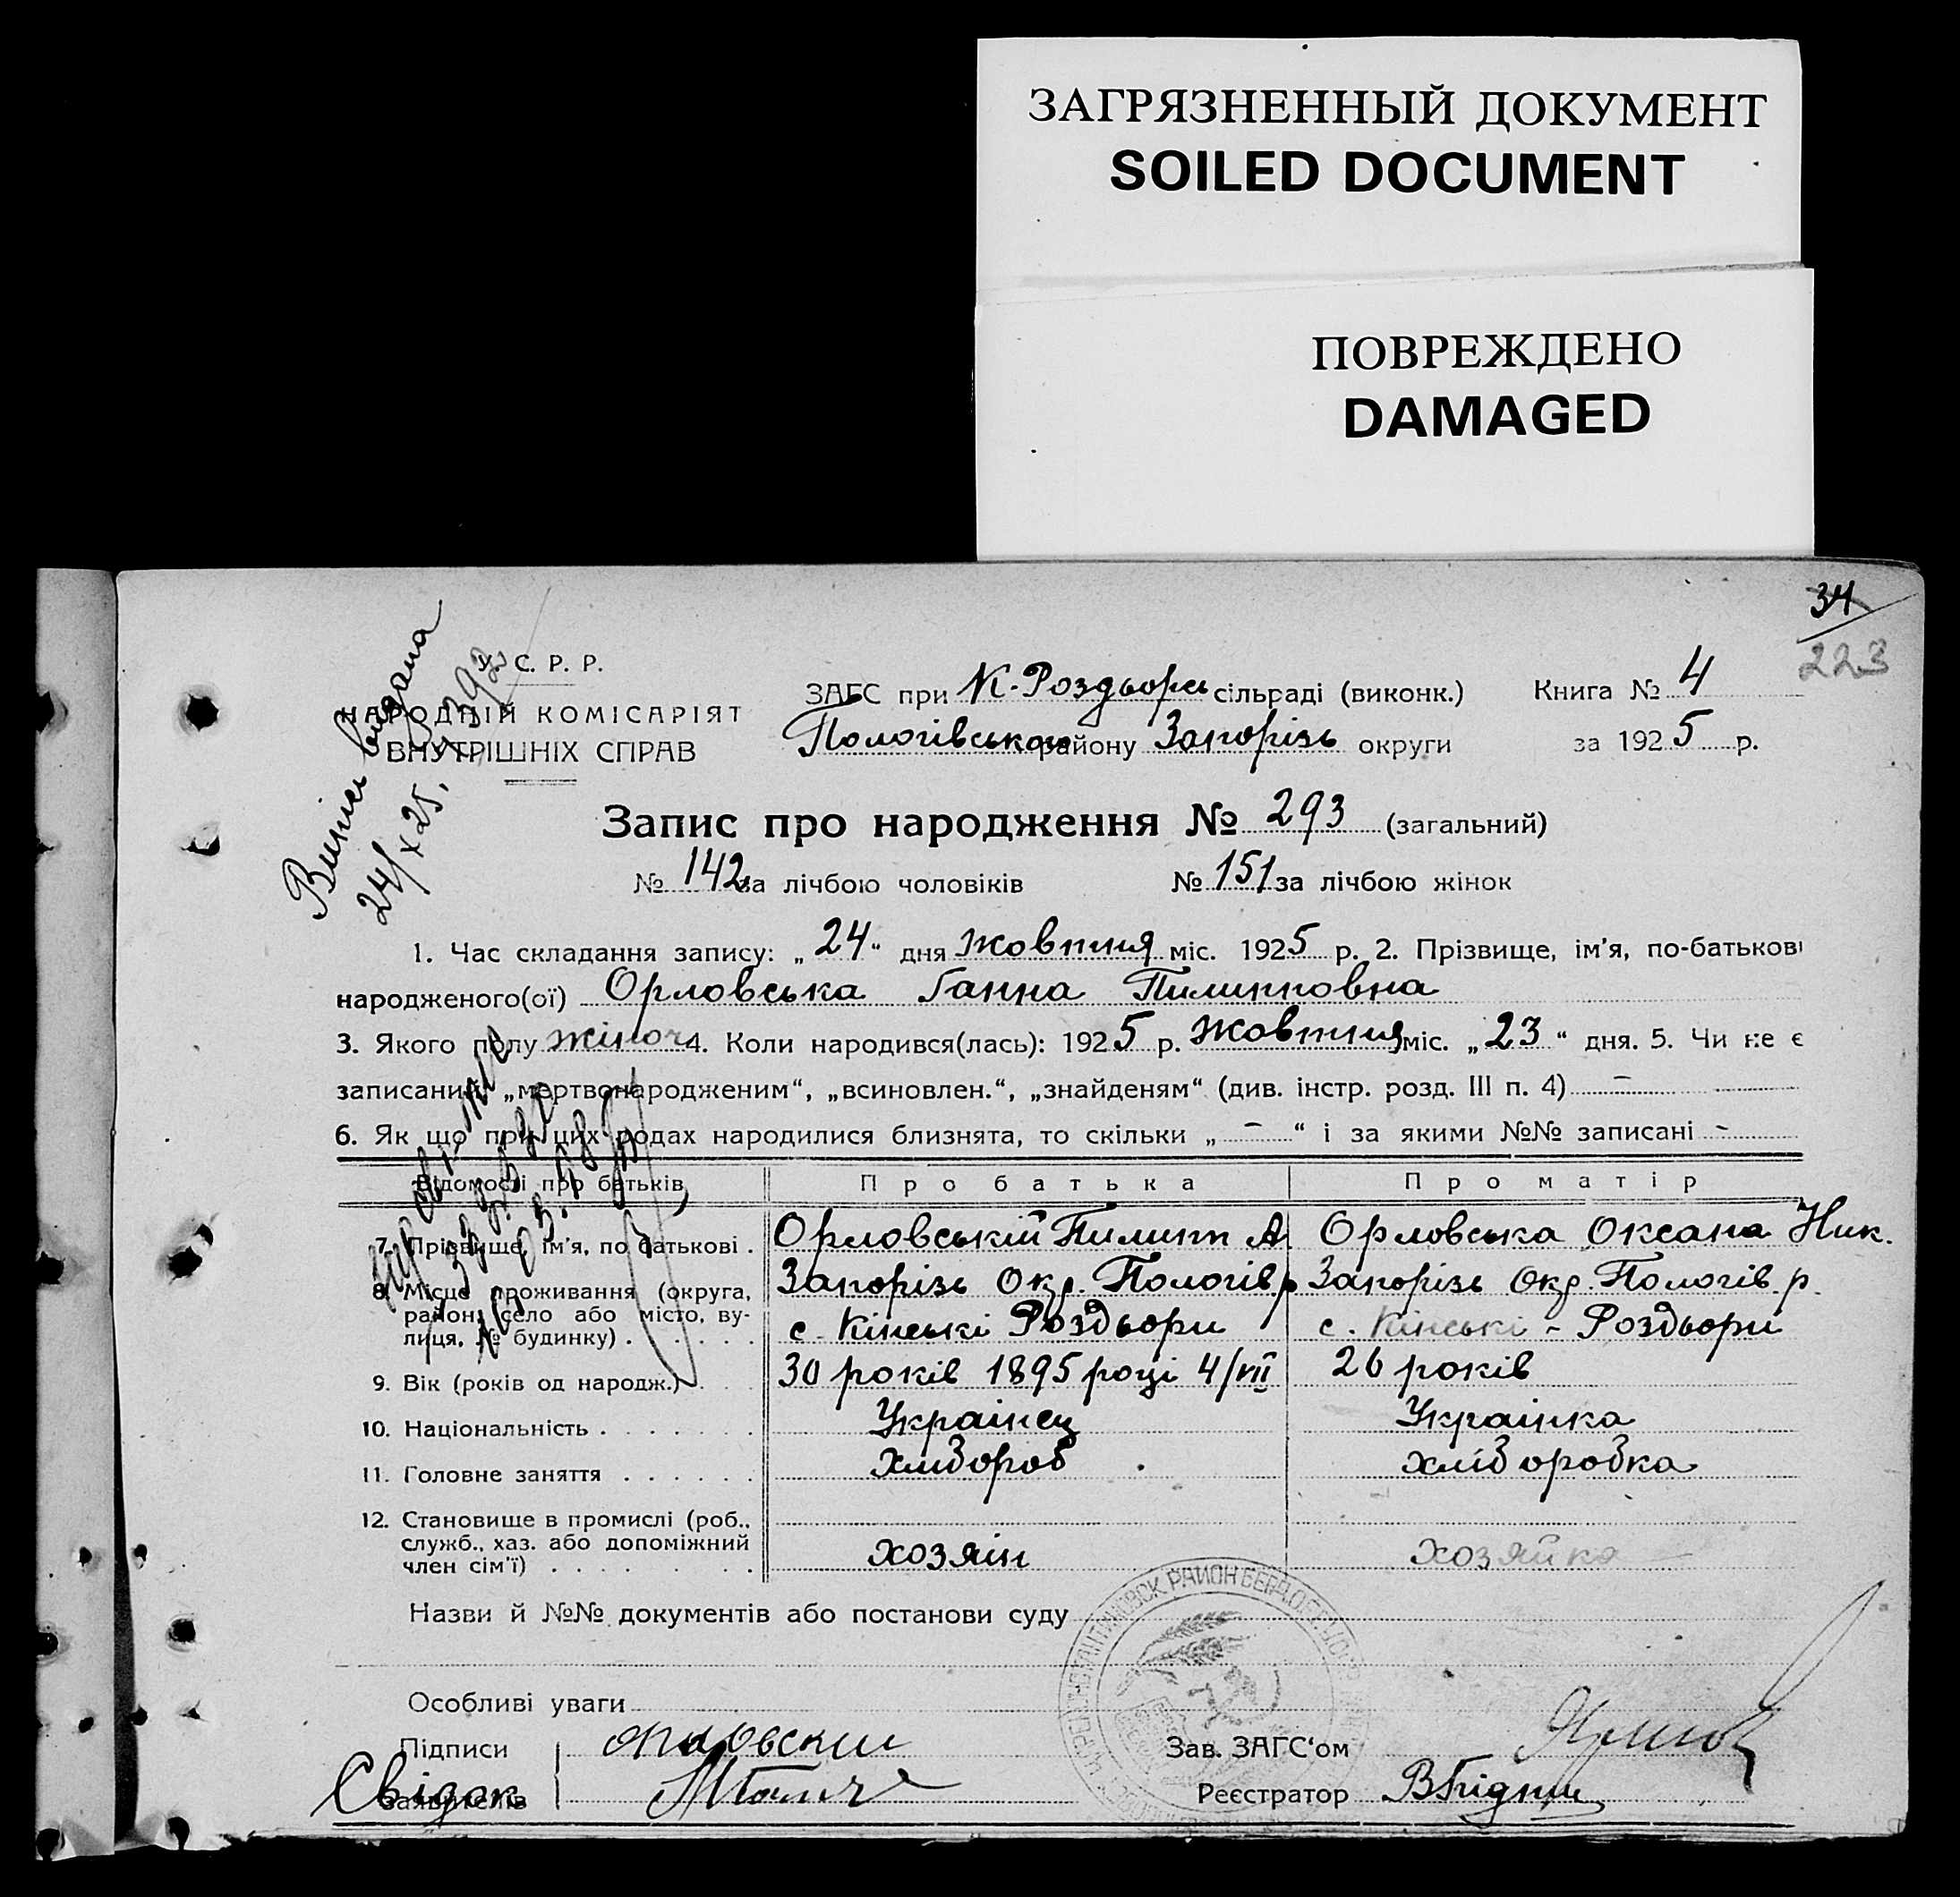 ЗАГРЯЗНЕННЫЙ ДОКУМЕНТ
SOILED DOCUMENT
ПОВРЕЖДЕНО
DAMAGED
34
223
Випись видана
24/X 25.
У. С. Р. Р.
НАРОДНІЙ КОМІСАРІЯТ
ВНУТРІШНІХ СПРАВ
ЗАГС при К-Роздьорь сільраді (виконк.) Книга № 4
Пологівською району Запорізь округи за 1925 р.
Запис про народження № 293 (загальний)
№ 142 за лічбою чоловіків № 151 за лічбою жінок
1. Час складання запису: „24“ дня жовтня міс. 1925 р. 2. Прізвище, ім'я, по-батькові
народженого(ої) Орловська Ганна Пилипповна
3. Якого полу жіноч 4. Коли народився(лась): 1925 р. Жовтня міс. „23“ дня. 5. Чи не є
записаний „мертвонародженим“, „всиновлен.“, „знайденям“ (див. інстр. розд. III п. 4) –
6. Як що при цих родах народилися близнята, то скільки „ – “ і за якими №№ записані –
Відомості про батьків Про батька Про матір
7. Прізвище, ім'я, по батькові . Орловській Пилипп А. Орловська Оксана Ник.
8. Місце проживання (округа, район, село або місто, вулиця, № будинку) . Запорізь Окр. Пологів. р Запорізь Окр. Пологів. р.
с. Кінські Роздьори с. Кінські - Роздьори
9. Вік (років од народж.) 30 років 1895 році 4/VII 26 років
10. Національність . Українец Українка
11. Головне заняття . Хлібороб хліборобка
12. Становище в промислі (роб., служб., хаз. або допоміжний член сім'ї) . хозяін хозяйка
Назви й №№ документів або постанови суду
Особливі уваги
Підписи орловскии Зав. ЗАГС'ом
Свідок заявителів Реєстратор